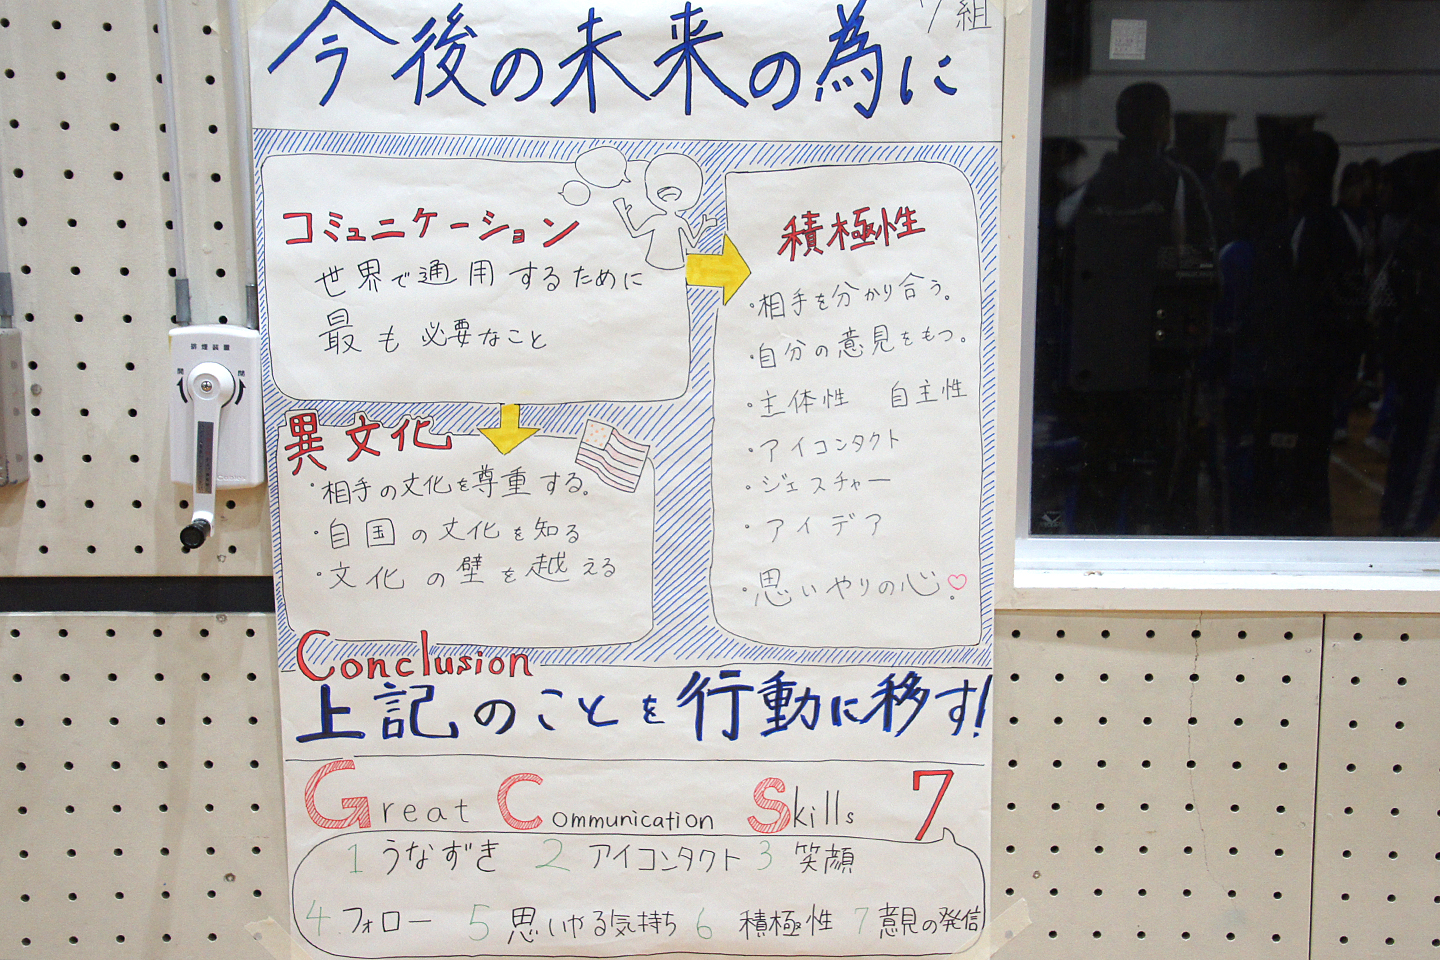 7組
今後の未来の為に
コミュニケーション
世界で通用するために
最も必要なこと
異文化
・相手の文化を尊重する。
・自国の文化を知る
・文化の壁を越える
積極性
・相手を分かり合う。
・自分の意見をもつ。
・主体性 自主性
・アイコンタクト
・ジェスチャー
・アイデア
・思いやりの心♡。
Conclusion
上記のことを行動に移す!
Great Communication Skills 7
1 うなずき 2 アイコンタクト 3 笑顔
4 フォロー 5 思いやる気持ち 6 積極性 7 意見の発信
排煙装置
開 閉